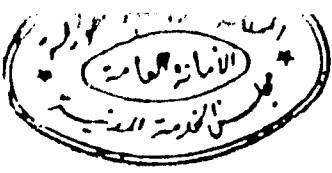 الأمانة العامة
مجلس الخدمة المدنية